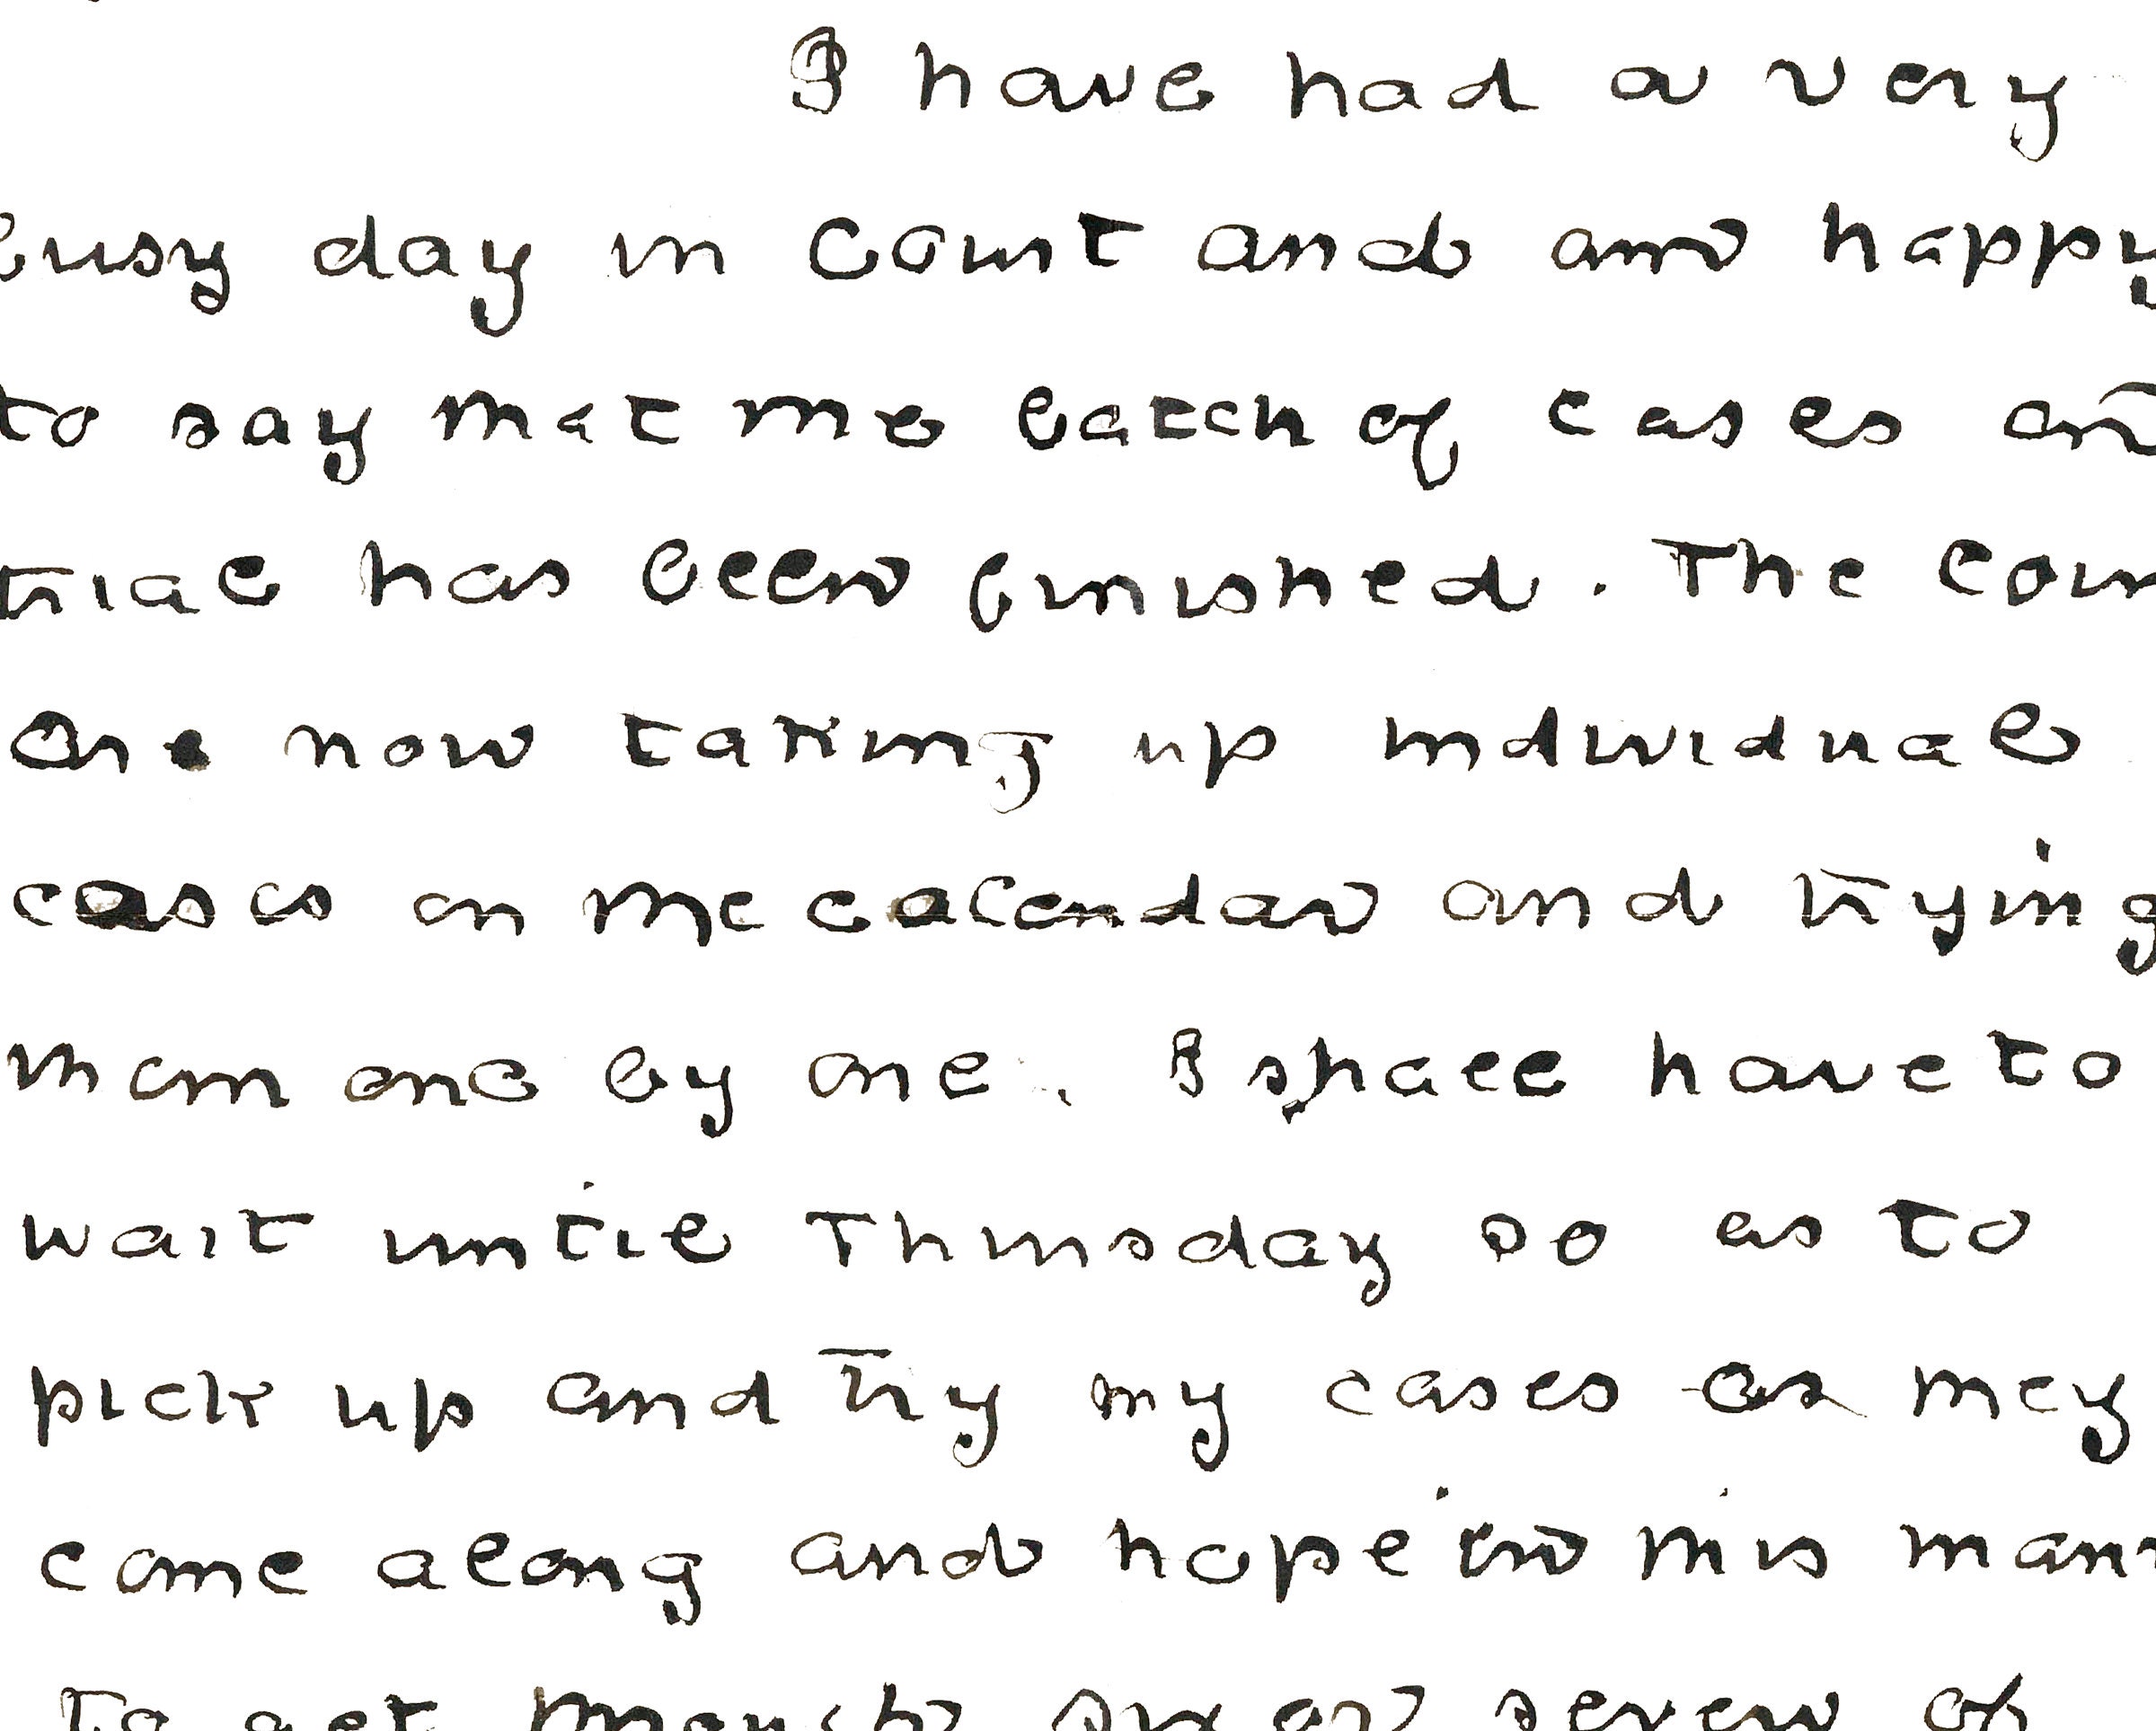 I have had a very
busy day in Court and am happy
to say that the batch of cases on
trial has been finished. The Cour
are now taking up individual
cases on the calendar and trying
them one by one. I shall have to
wait until Thursday so as to
pick up and try my cases as they
come along and hope in this mann
to get through six or seven of